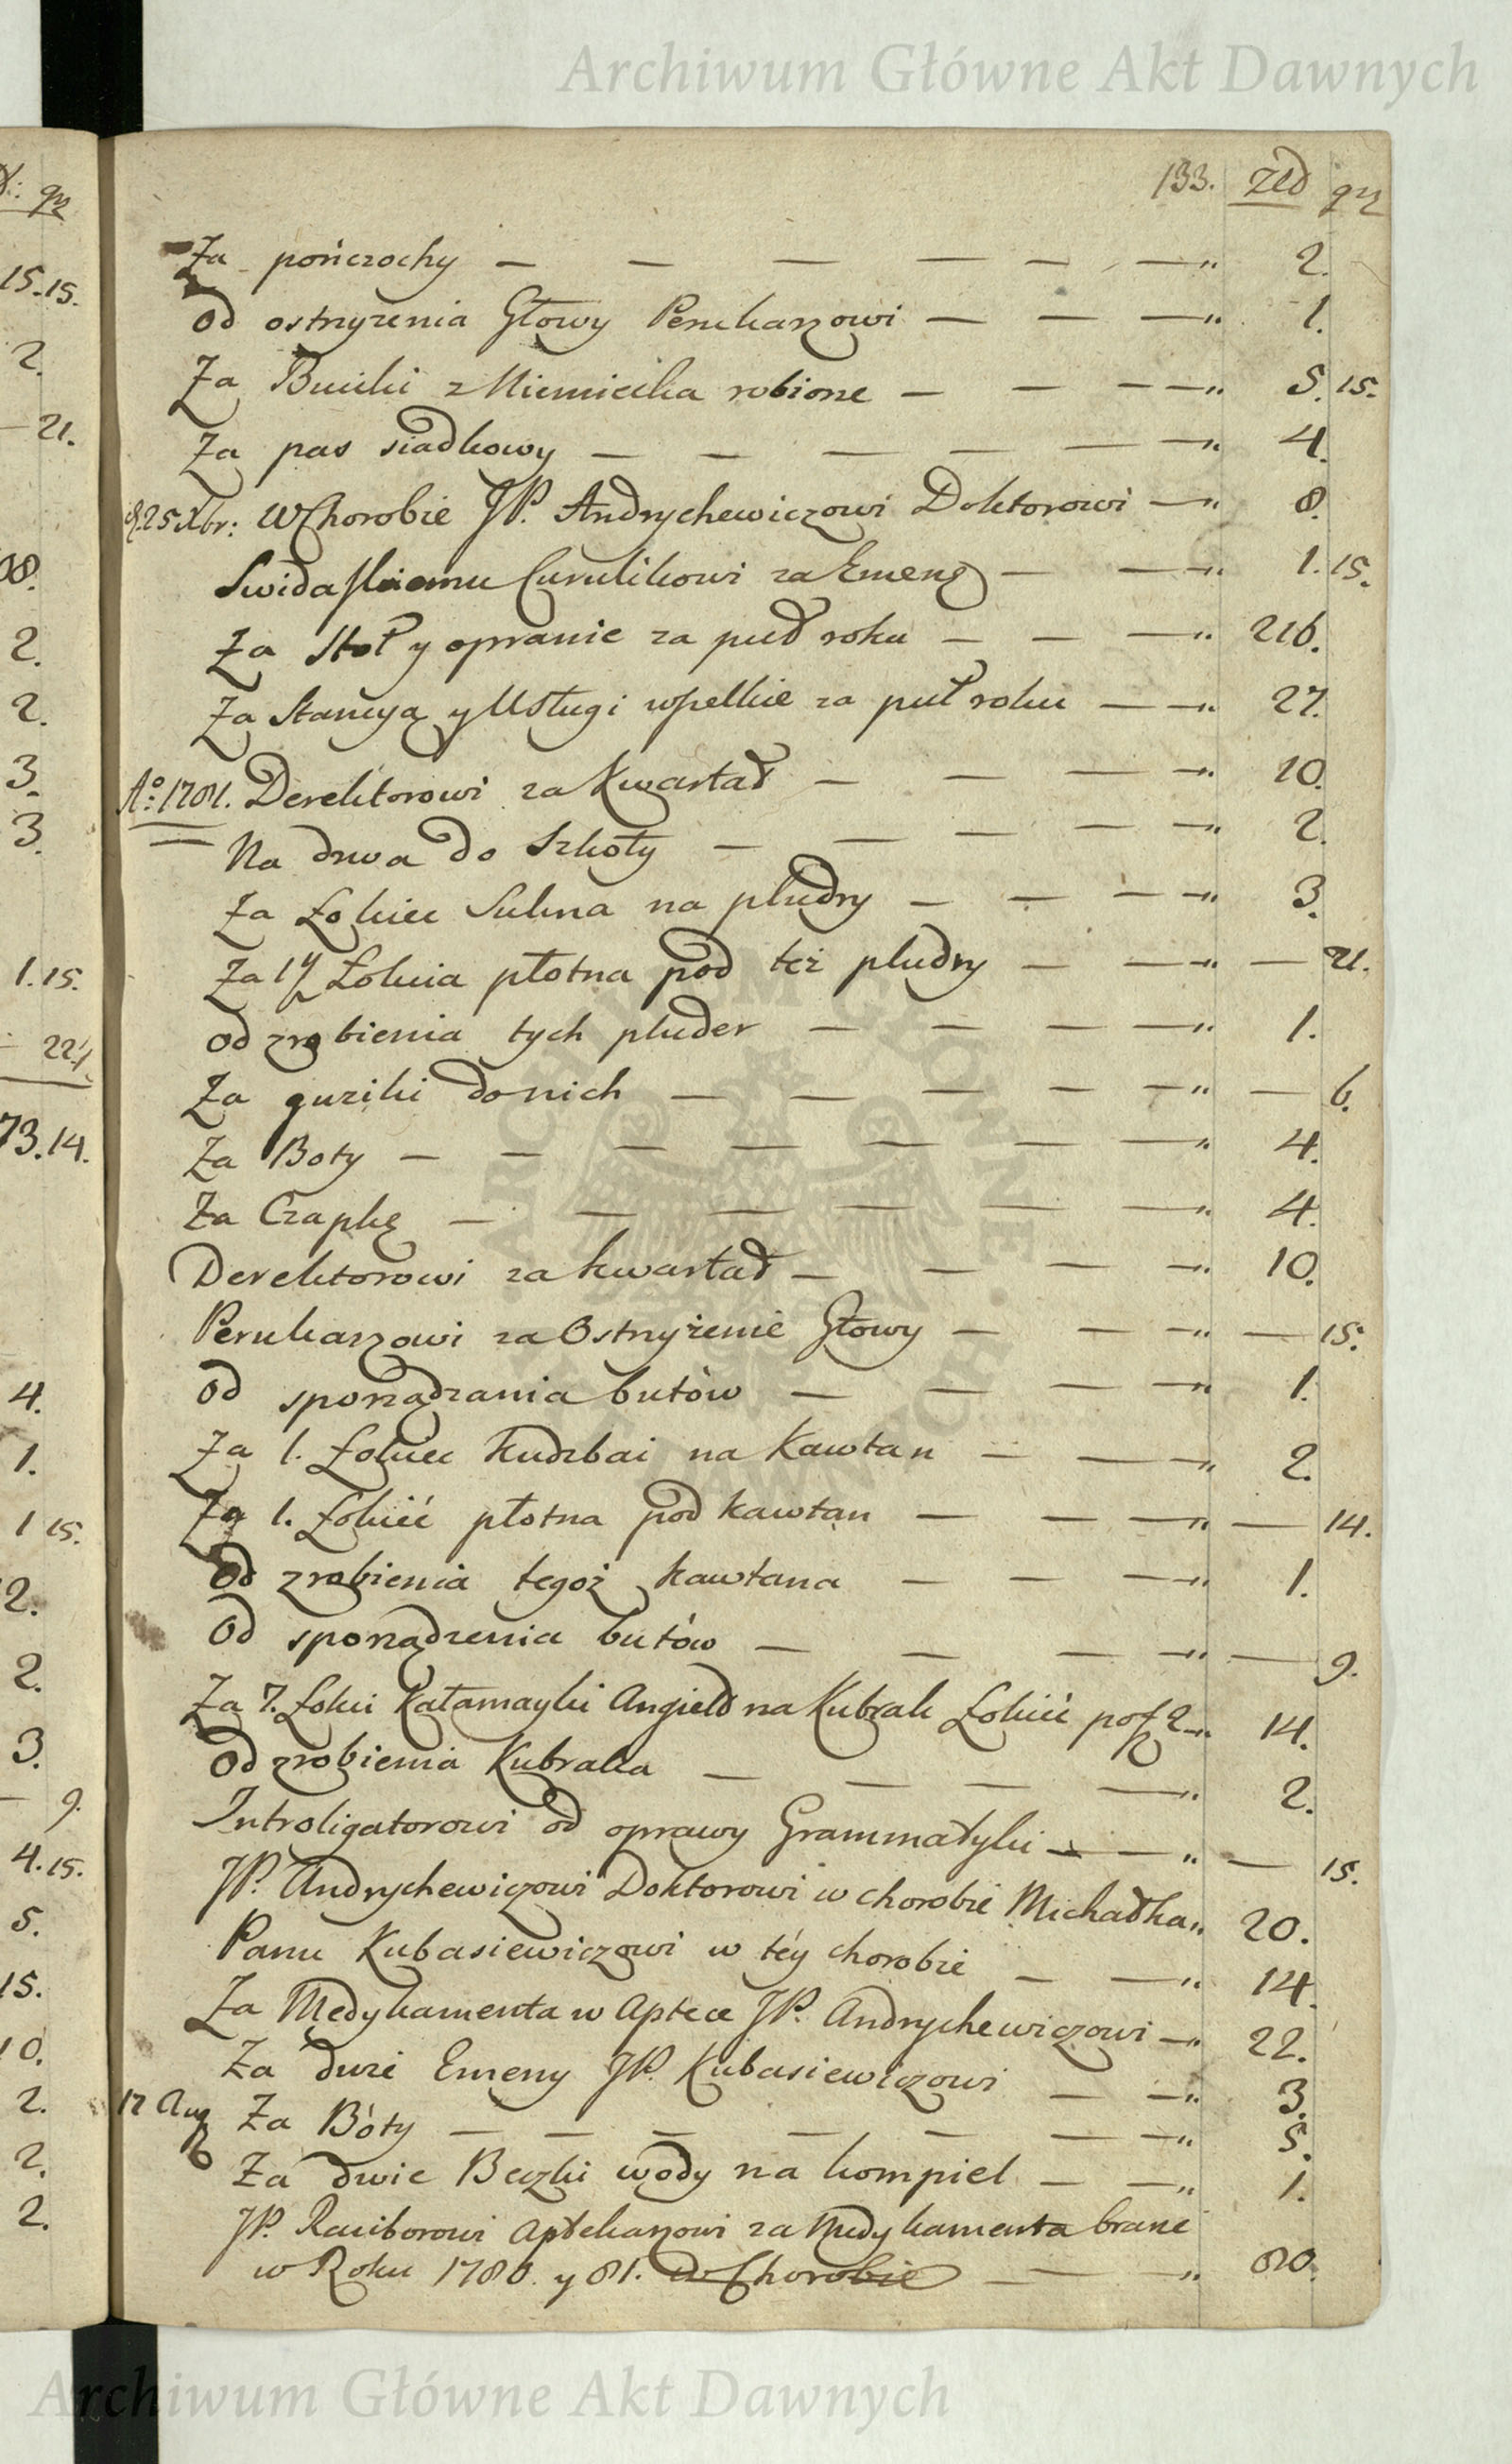 Archiwum Główne Akt Dawnych
133. zld gr
Za pończochy — — — — — — " 2.
Od ostrzyzenia Głowy Perukarzowi — — — " 1.
Za Buciki z Niemiecka robione — — — — " 5. 15.
Za pas siadkowy — — — — — — " 4.
25 Xbr: W Chorobie JP. Andrychewiczowi Doktorowi — " 8.
Cyrulikowi za Emenę — — " 1. 15.
Za Stoł y opranie za puł roku — — — " 216.
Za Stancyą y Usługi wszelkie za puł roku — — " 27.
Ao: 1781. Derektorowi za Kwartał — — — — " 10.
Na drwa do Szkoły — — — — — " 2.
Za Łokiec Sukna na pludry — — — — " 3.
Za 1½ Łokcia płotna pod też pludry — — " — 21.
od zrobienia tych pluder — — — — " 1.
Za guziki do nich — — — — — " — 6.
Za Boty — — — — — — — " 4.
Za Czapkę — — — — — — " 4.
Derektorowi za kwartał — — — — " 10.
Perukarzowi za Ostrzyżenie Głowy — — — " — 15.
Od sporządzania butów — — — — " 1.
Za 1. Łokiec Kudzbai na Kawtan — — — " 2.
Za 1. Łokiéć płotna pod kawtan — — — " — 14.
Od zrobienia tegoż kawtana — — — " 1.
Od sporządzenia butów — — — — " — 9.
Za 7. Łokci Kałamayki Angiels na Kubrak Łokiéć po 2 — " 14.
Od zrobienia Kubraka — — — — " 2.
Introligatorowi od oprawy Grammatyki — — " — 15.
JP. Andrychewiczowi Doktorowi w chorobie Michałka " 20.
Panu Kubasiewiczowi w téy chorobie — — " 14.
Za Medykamenta w Aptece JP. Andrychewiczowi — " 22.
Za dwie Emeny JP. Kubasiewiczowi — — " 3.
17 Aug Za Bóty — — — — — — — " 5.
Za dwie Beczki wody na kompiel — — " 1.
JP. Raciborowi Aptekarzowi za Medykamenta brane
w Roku 1780. y 81. w Chorobie — — " 80.
Archiwum Główne Akt Dawnych